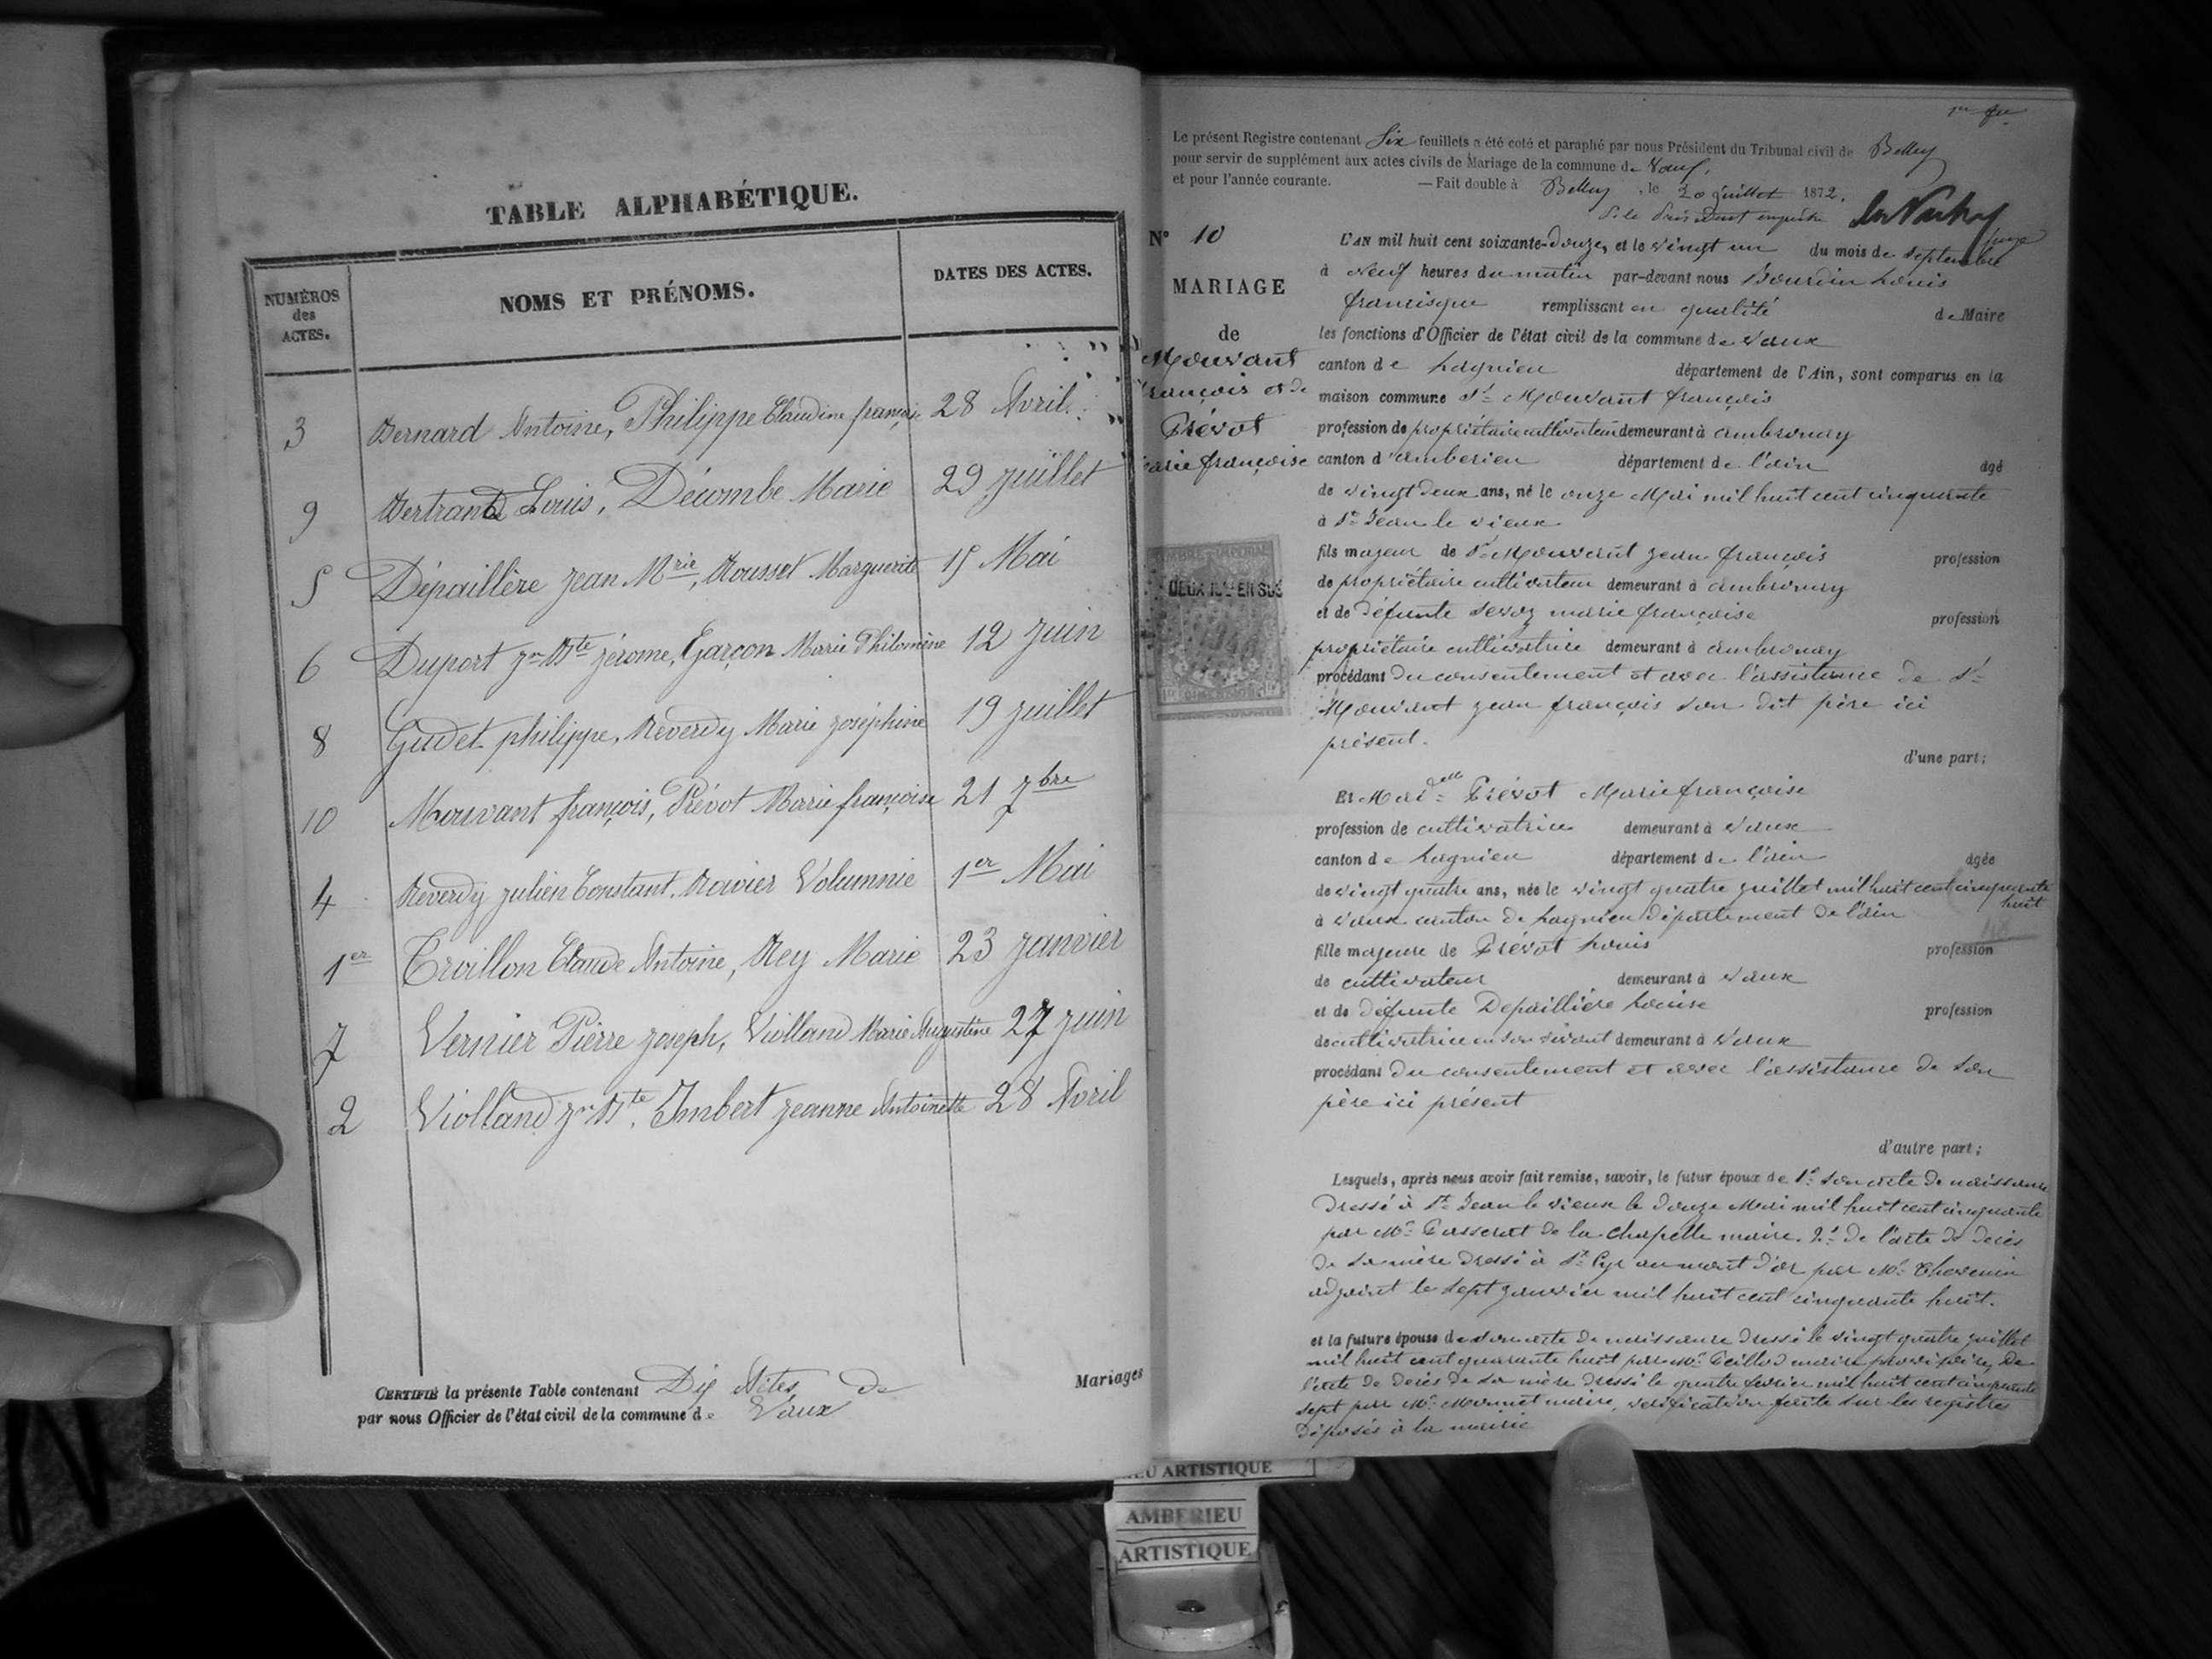 TABLE ALPHABÉTIQUE.
NUMÉROS des ACTES.
NOMS ET PRÉNOMS.
DATES DES ACTES.
3 Bernard Antoine, Philippe Claudine françoise 28 Avril
9 Bertrand Louis, Décombe Marie 29 juillet
5 Dépaillère jean Mrie, Rousset Marguerite 15 Mai
6 Duport jn Bte jérome, Garçon Marie Philomène 12 juin
8 Gudet philippe, Reverdy Marie joséphine 19 juillet
10 Mouvant françois, Prévot Marie françoise 21 7bre
4 Reverdy julien Constant, Rovier Volumnie 1er Mai
1er Trvillon Claude Antoine, Rey Marie 23 janvier
7 Vernier Pierre joseph, Violland Marie Augustine 27 juin
2 Violland jn Bte, Imbert jeanne Antoinette 28 Avril
CERTIFIÉ la présente Table contenant Dix Actes de Mariages
par nous Officier de l'état civil de la commune de Vaux
Le présent Registre contenant Six feuillets a été coté et paraphé par nous Président du Tribunal civil de Belley
pour servir de supplément aux actes civils de Mariage de la commune de Vaux,
et pour l'année courante. — Fait double à Belley, le 20 juillet 1872.
P. le Président empêché
juge
N° 10
MARIAGE
de
Mouvant
françois et de
Prévot
Marie françoise
TIMBRE IMPERIAL
DEUX 10es EN SUS
DIMENSION
L'AN mil huit cent soixante-douze, et le vingt un du mois de septembre
à neuf heures du matin par-devant nous Bourdin Louis
francisque remplissant en qualité de Maire
les fonctions d'Officier de l'état civil de la commune de Vaux
canton de Lagnieu département de l'Ain, sont comparus en la
maison commune Sr Mouvant françois
profession de propriétaire cultivateur demeurant à ambronay
canton d'amberieu département de l'ain âgé
de vingt deux ans, né le onze Mai mil huit cent cinquante
à St Jean le vieux
fils majeur de Sr Mouvant jean françois profession
de propriétaire cultivateur demeurant à ambronay
et de défunte Sevoz marie françoise profession
propriétaire cultivatrice demeurant à ambronay
procédant du consentement et avec l'assistance de Sr
Mouvant jean françois son dit père ici
présent.
d'une part;
Et Mad=elle Prévot Marie françoise
profession de cultivatrice demeurant à Vaux
canton de Lagnieu département de l'ain âgée
de vingt quatre ans, née le vingt quatre juillet mil huit cent cinquante
huit
à Vaux canton de Lagnieu département de l'ain
fille majeure de Prévot Louis profession
de cultivateur demeurant à Vaux
et de défunte Depaillière Louise profession
de cultivatrice en son vivant demeurant à Vaux
procédant du consentement et avec l'assistance de son
père ici présent
d'autre part;
Lesquels, après nous avoir fait remise, savoir, le futur époux de 1° son acte de naissance
dressé à St Jean le vieux le douze Mai mil huit cent cinquante
par Mr Passerat de la chapelle maire. 2° de l'acte de décès
de sa mère dressé à St Cyr au mont d'or par Mr Thevenin
adjoint le sept janvier mil huit cent cinquante huit.
et la future épouse de son acte de naissance dressé le vingt quatre juillet
mil huit cent quarante huit par Mr maire provisoire, de
l'acte de décès de sa mère dressé le quatre fevrier mil huit cent cinquante
sept par Mr Monnet maire, vérification faite sur les registres
déposés à la mairie
LIEU ARTISTIQUE
AMBERIEU
ARTISTIQUE